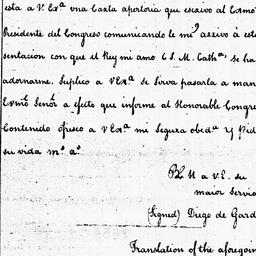 esta a V. Exª una Carta apertoria que escrivo al Exmo
Presidente del Congreso comunicando le mi arrivo à este
sentacion con que el Rey mi amo (S. M. Cathª, se ha
adornarme. Suplico a VExª se sirva pasarla a man
Exmõ Señor a efecto que informe al Honorable Congre
Contenido ofresco a VExª mi segura obedª y Pid
su vida mˢ aˢ
BLM a V.E. su
maior servid
(Signed) Diego de Gard
Translation of the aforegoin